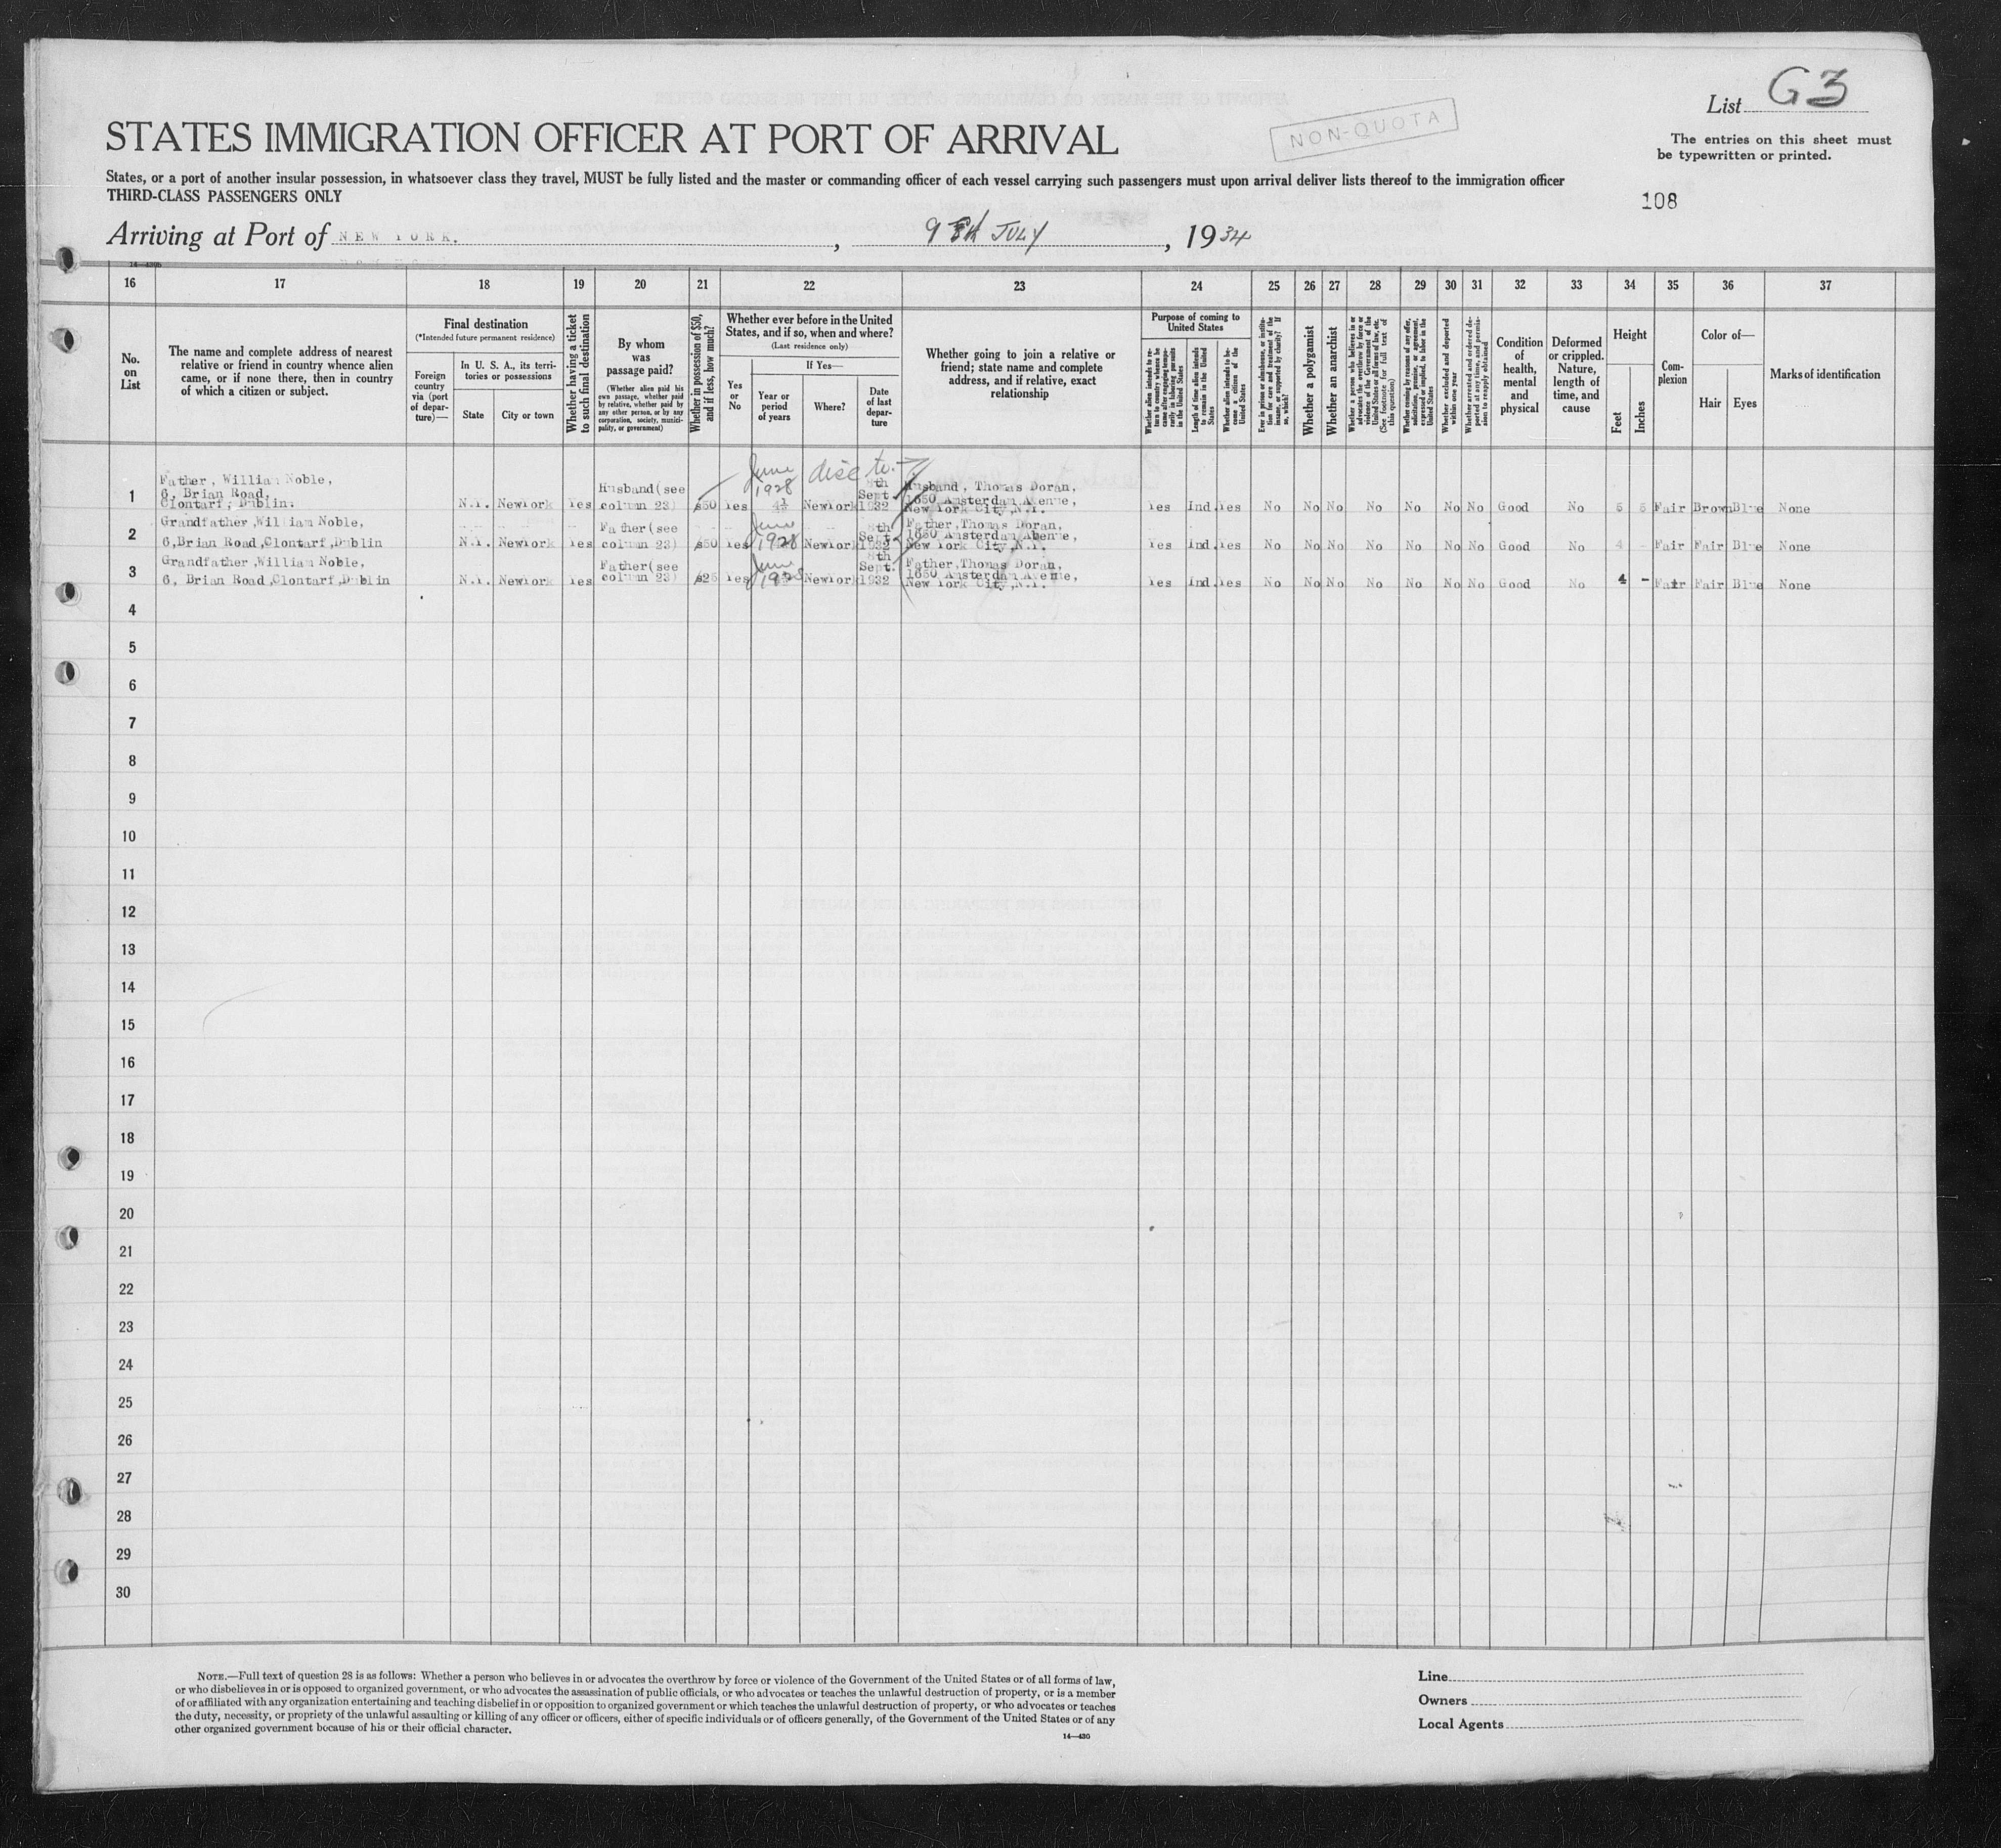 List G3
STATES IMMIGRATION OFFICER AT PORT OF ARRIVAL
NON-QUOTA
The entries on this sheet must
be typewritten or printed.
States, or a port of another insular possession, in whatsoever class they travel, MUST be fully listed and the master or commanding officer of each vessel carrying such passengers must upon arrival deliver lists thereof to the immigration officer
THIRD-CLASS PASSENGERS ONLY
108
Arriving at Port of NEW YORK. , 9th JULY , 1934
16 17 18 19 20 21 22 23 24 25 26 27 28 29 30 31 32 33 34 35 36 37
No. on List
The name and complete address of nearest
relative or friend in country whence alien
came, or if none there, then in country
of which a citizen or subject.
Final destination
(*Intended future permanent residence)
Foreign country via (port of departure)—
In U. S. A., its territories or possessions
State
City or town
Whether having a ticket to such final destination
By whom was passage paid?
(Whether alien paid his own passage, whether paid by relative, whether paid by any other person, or by any corporation, society, municipality, or government)
Whether in possession of $50, and if less, how much?
Whether ever before in the United States, and if so, when and where?
(Last residence only)
If Yes—
Yes or No
Year or period of years
Where?
Date of last departure
Whether going to join a relative or
friend; state name and complete
address, and if relative, exact
relationship
Purpose of coming to United States
Whether alien intends to return to country whence he came after engaging temporarily in laboring pursuits in the United States
Length of time alien intends to remain in the United States
Whether alien intends to become a citizen of the United States
Ever in prison or almshouse, or institution for care and treatment of the insane, or supported by charity? If so, which?
Whether a polygamist
Whether an anarchist
Whether a person who believes in or advocates the overthrow by force or violence of the Government of the United States or all forms of law, etc. (See footnote for full text of this question)
Whether coming by reasons of any offer, solicitation, promise, or agreement, expressed or implied, to labor in the United States
Whether excluded and deported within one year
Whether arrested and ordered deported at any time, and permission to reapply obtained
Condition of health, mental and physical
Deformed or crippled. Nature, length of time, and cause
Height
Feet
Inches
Complexion
Color of—
Hair
Eyes
Marks of identification
1 Father, William Noble,
6, Brian Road,
Clontarf, Dublin. N.Y. NewYork Yes Husband (see column 23) $50 Yes June 1928 NewYork 8th Sept. 1932 Husband, Thomas Doran,
1650 Amsterdam Avenue,
New York City, N.Y. Yes Ind. Yes No No No No No No No Good No 5 5 Fair Brown Blue None
2 Grandfather, William Noble,
6, Brian Road, Clontarf, Dublin N.Y. NewYork Yes Father (see column 23) $50 Yes June 1928 NewYork 8th Sept. 1932 Father, Thomas Doran,
1650 Amsterdam Abenue,
New York City, N.Y. Yes Ind. Yes No No No No No No No Good No 4 - Fair Fair Blue None
3 Grandfather, William Noble,
6, Brian Road, Clontarf, Dublin N.Y. NewYork Yes Father (see column 23) $25 Yes June 1928 NewYork 8th Sept. 1932 Father, Thomas Doran,
1650 Amsterdam Avenue,
New York City, N.Y. Yes Ind. Yes No No No No No No No Good No 4 - Fair Fair Blue None
4
5
6
7
8
9
10
11
12
13
14
15
16
17
18
19
20
21
22
23
24
25
26
27
28
29
30
NOTE.—Full text of question 28 is as follows: Whether a person who believes in or advocates the overthrow by force or violence of the Government of the United States or of all forms of law,
or who disbelieves in or is opposed to organized government, or who advocates the assassination of public officials, or who advocates or teaches the unlawful destruction of property, or is a member
of or affiliated with any organization entertaining and teaching disbelief in or opposition to organized government or which teaches the unlawful destruction of property, or who advocates or teaches
the duty, necessity, or propriety of the unlawful assaulting or killing of any officer or officers, either of specific individuals or of officers generally, of the Government of the United States or of any
other organized government because of his or their official character.
14—430
Line
Owners
Local Agents